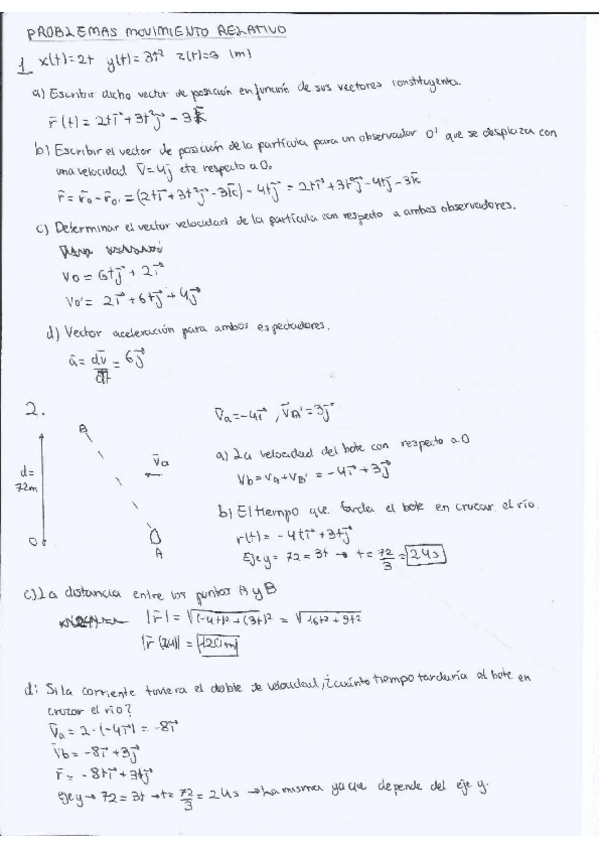 PROBLEMAS MOVIMIENTO RELATIVO
1. x(t)=2t y(t)=3t² z(t)=3 (m)
a) Escribir dicho vector de posición en función de sus vectores constituyentes.
r̄(t)=2ti⃗+3t²j⃗-3k̄
b) Escribir el vector de posición de la partícula para un observador O' que se desplaza con
una velocidad V̄=4j cte respecto a O.
r̄=r̄o-r̄o'=(2ti⃗+3t²j⃗-3k̄)-4tj⃗=2ti⃗+3t²j⃗-4tj-3k̄
c) Determinar el vector velocidad de la partícula con respecto a ambos observadores.
Vo=6tj⃗+2i⃗
Vo'=2i⃗+6tj⃗-4j⃗
d) Vector aceleración para ambos espectadores.
ā=dv̄/dt=6j⃗
2.
V̄a=-4i⃗, V̄B'=3j⃗
B
V̄a
d=
72m
O
A
a) La velocidad del bote con respecto a O
Vb=VA+VB'=-4i⃗+3j⃗
b) El tiempo que tarda el bote en cruzar el río.
r(t)=-4ti⃗+3tj⃗
Eje y=72=3t→t=72/3=24s
c) La distancia entre los puntos A y B
|r̄|=√(-4t)²+(3t)²=√16t²+9t²
|r̄(24)|=120m
d: Si la corriente tuviera el doble de velocidad, ¿cuánto tiempo tardaría al bote en
cruzar el río?
V̄a=2·(-4i⃗)=-8i⃗
V̄b=-8i⃗+3j⃗
r̄=-8ti⃗+3tj⃗
Eje y→72=3t→t=72/3=24s→La misma ya que depende del eje y.